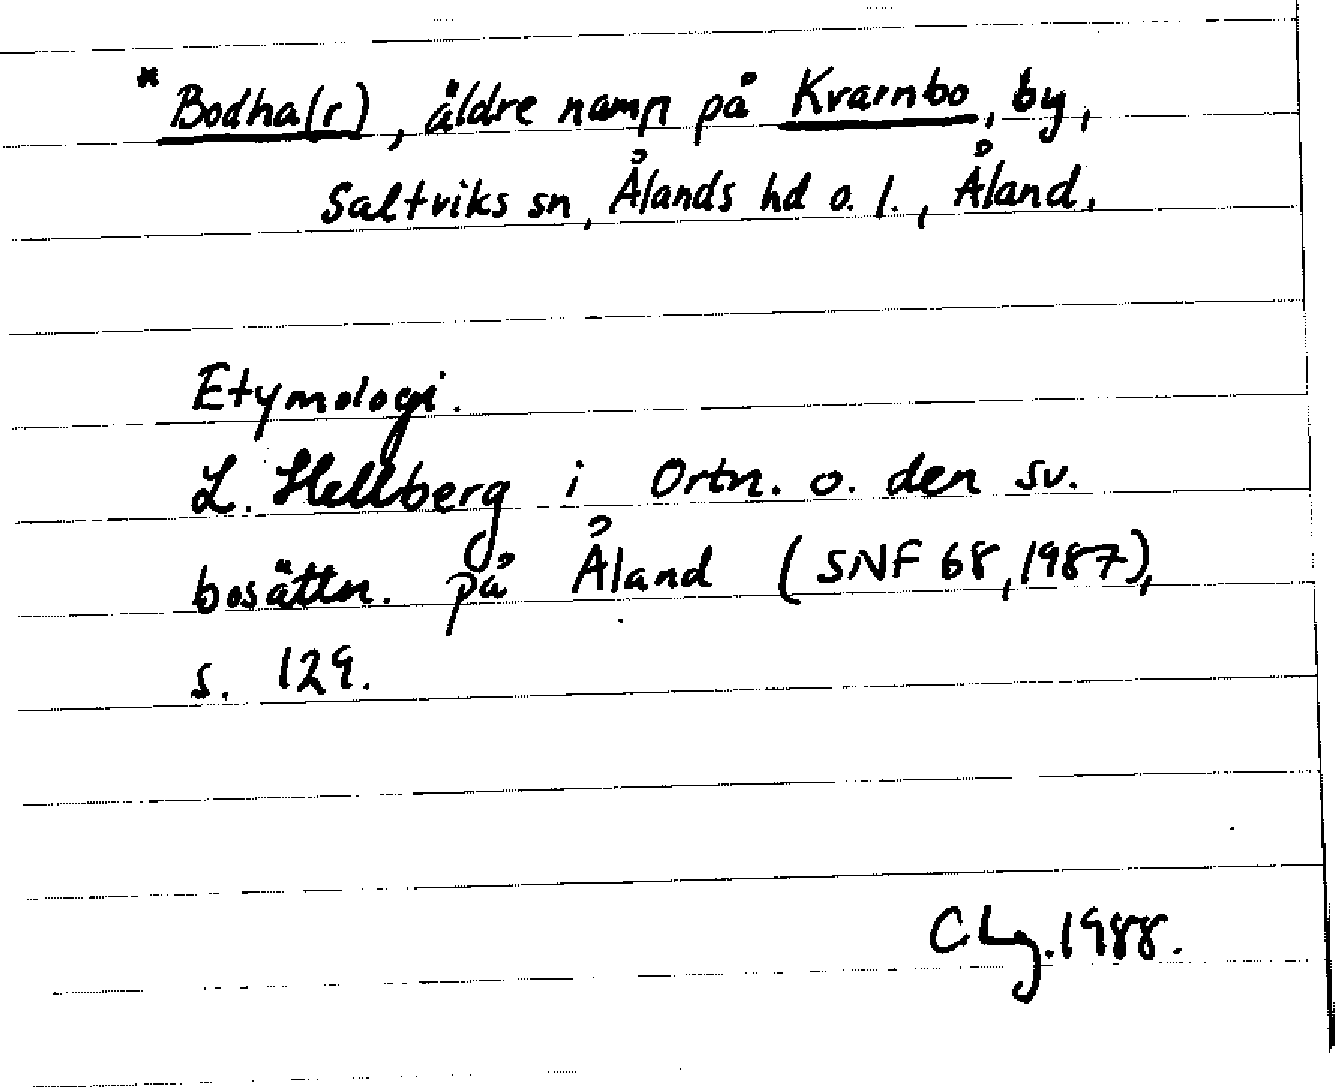 *Bodha(r), äldre namn på Kvarnbo, by,
Saltviks sn, Ålands hd o. l., Åland.
Etymologi.
L. Hellberg i Ortn. o. den sv.
bosättn. på Åland (SNF 68, 1987),
s. 129.
CLg. 1988.